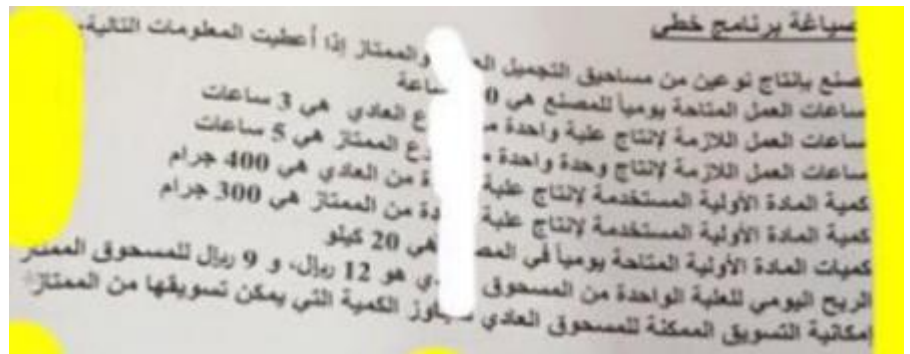 صياغة برنامج خطي
صنع بإنتاج نوعين من مساحيق التجميل والممتاز إذا أعطيت المعلومات التالية،
ساعات العمل المتاحة يومياً للمصنع هي 0 ساعة
ساعات العمل اللازمة لإنتاج علبة واحدة ع العادي هي 3 ساعات
ساعات العمل اللازمة لإنتاج وحدة واحدة الممتاز هي 5 ساعات
كمية المادة الأولية المستخدمة لإنتاج علبة ة من العادي هي 400 جرام
كمية المادة الأولية المستخدمة لإنتاج علبة دة من الممتاز هي 300 جرام
كميات المادة الأولية المتاحة يومياً في المصـ هي 20 كيلو
الربح اليومي للعلبة الواحدة من المسحوق ي هو 12 ريال، و 9 ريال للمسحوق الممتاز
إمكانية التسويق الممكنة للمسحوق العادي الكمية التي يمكن تسويقها من الممتاز